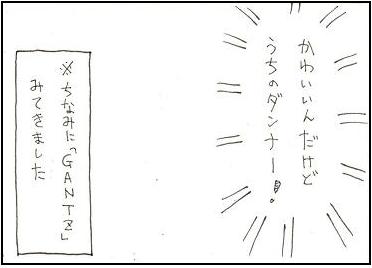 かわいいんだけど
うちのダンナー!!
※ちなみに「GANTZ」
みてきました